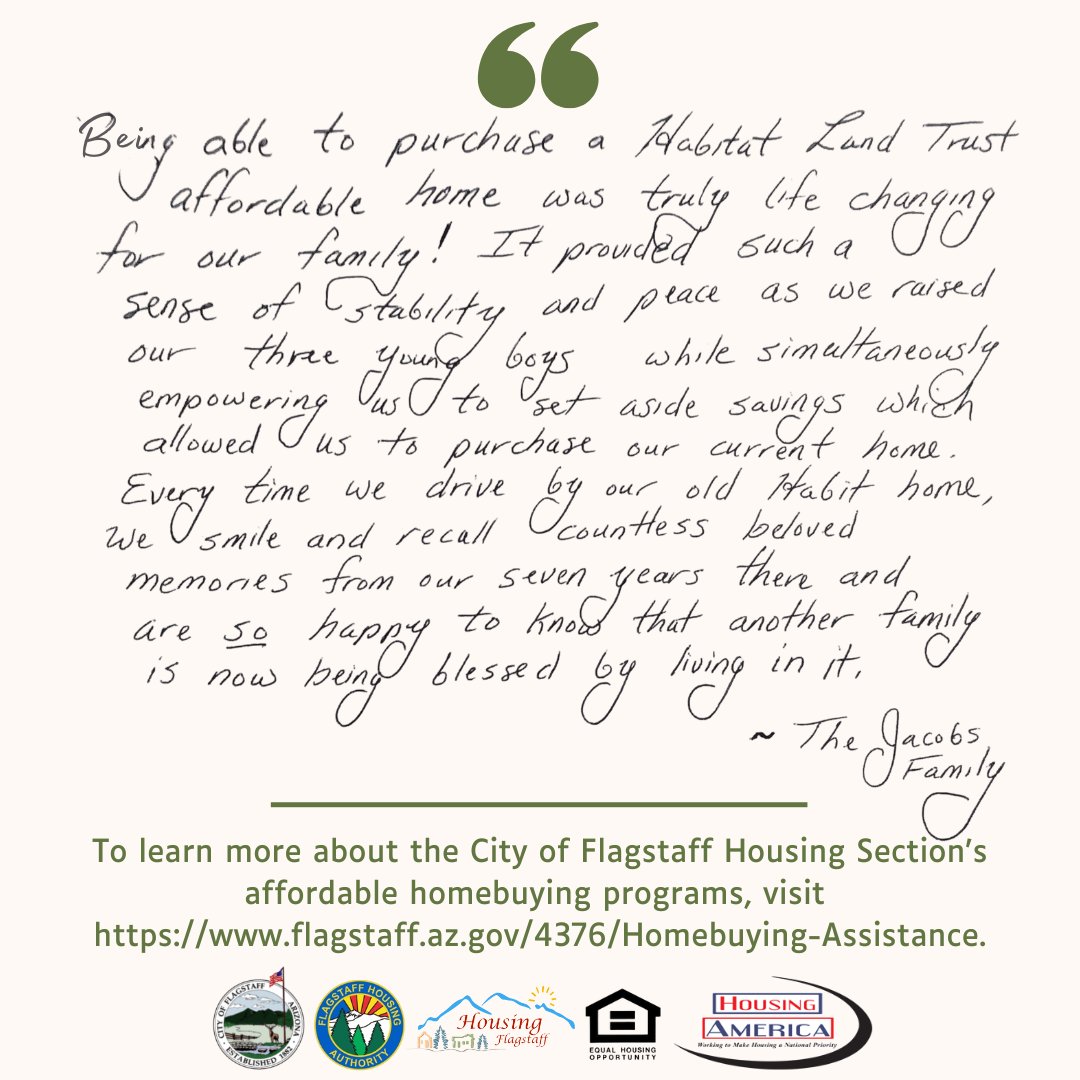 Being able to purchase a Habitat Land Trust
affordable home was truly life changing
for our family! It provided such a
sense of stability and peace as we raised
our three young boys while simultaneously
empowering us to set aside savings which
allowed us to purchase our current home.
Every time we drive by our old Habit home,
we smile and recall countless beloved
memories from our seven years there and
are so happy to know that another family
is now being blessed by living in it.
~ The Jacobs
Family
To learn more about the City of Flagstaff Housing Section's
affordable homebuying programs, visit
https://www.flagstaff.az.gov/4376/Homebuying-Assistance.
CITY OF FLAGSTAFF ARIZONA
ESTABLISHED 1882
FLAGSTAFF HOUSING
AUTHORITY
Housing
Flagstaff
EQUAL HOUSING
OPPORTUNITY
HOUSING
AMERICA
Working to Make Housing a National Priority